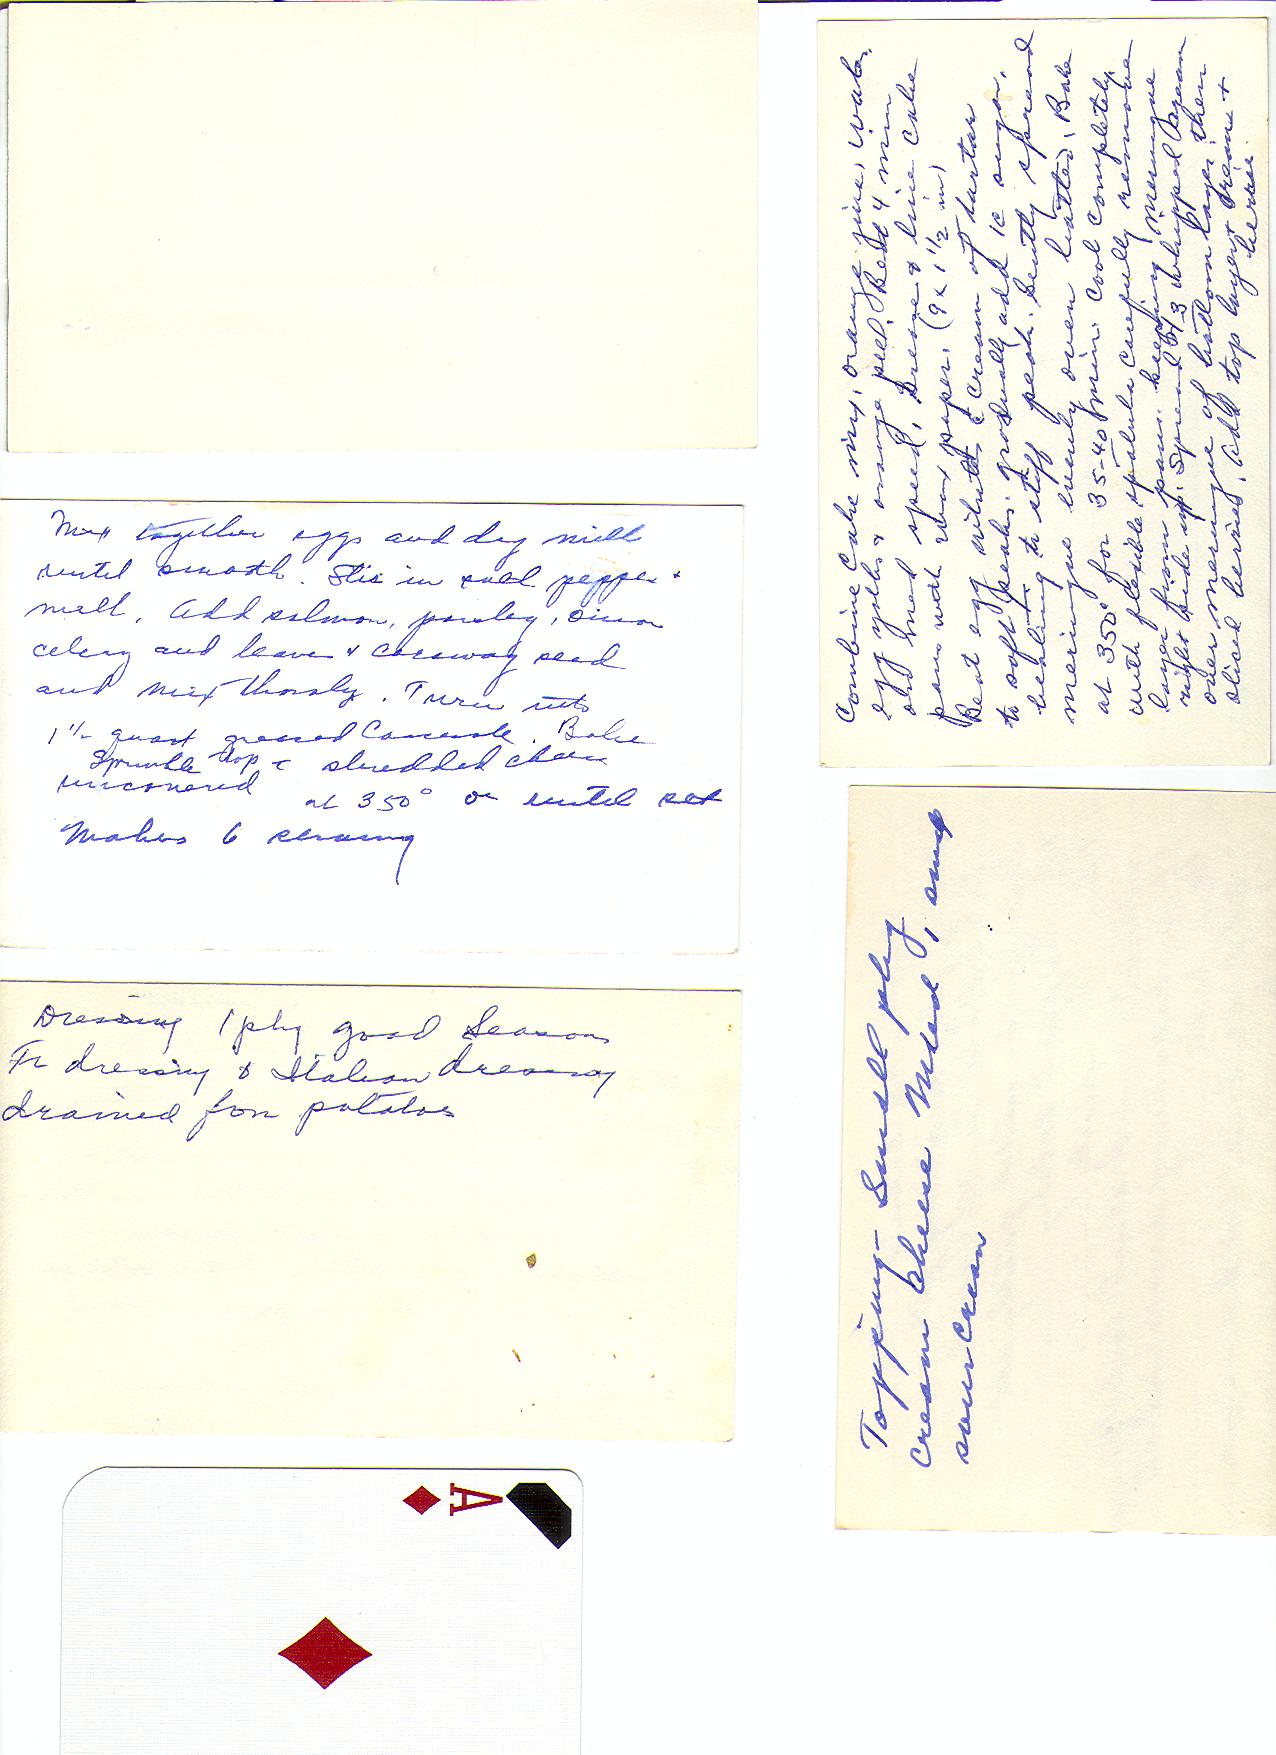 Mix together eggs and dry milk
until smooth. Stir in salt pepper +
milk. Add salmon, parsley, onion
celery and leaves + caraway seed
and mix thorsly. Turn into
1 1/2 quart greased Casserole. Bake
Sprinkle top c shredded cheese
uncovered at 350° or until set
Makes 6 serving
Dressing 1 pkg good Seasons
Fr dressing & Italian dressing
drained from potatoes
A
Combine Cake mix, orange juice, water,
egg yolks & orange peel. Beat 4 min
on med speed. Grease & line cake
pans with wax paper. (9 x 1 1/2 in)
Beat egg whites & cream of tartar
to soft peaks. gradually add 1c sugar,
beating to stiff peak. Gently spread
meringue evenly over batter. Bake
at 350° for 35-40 min. Cool completely
with flexible spatula carefully remove
layer from pans. keeping meringue
right side up. Spread 2/3 whipped cream
over meringue of bottom layer, then
sliced berries. Add top layer cream +
berries.
Topping - Small pkg
Cream Cheese Mixed, and
sour Cream